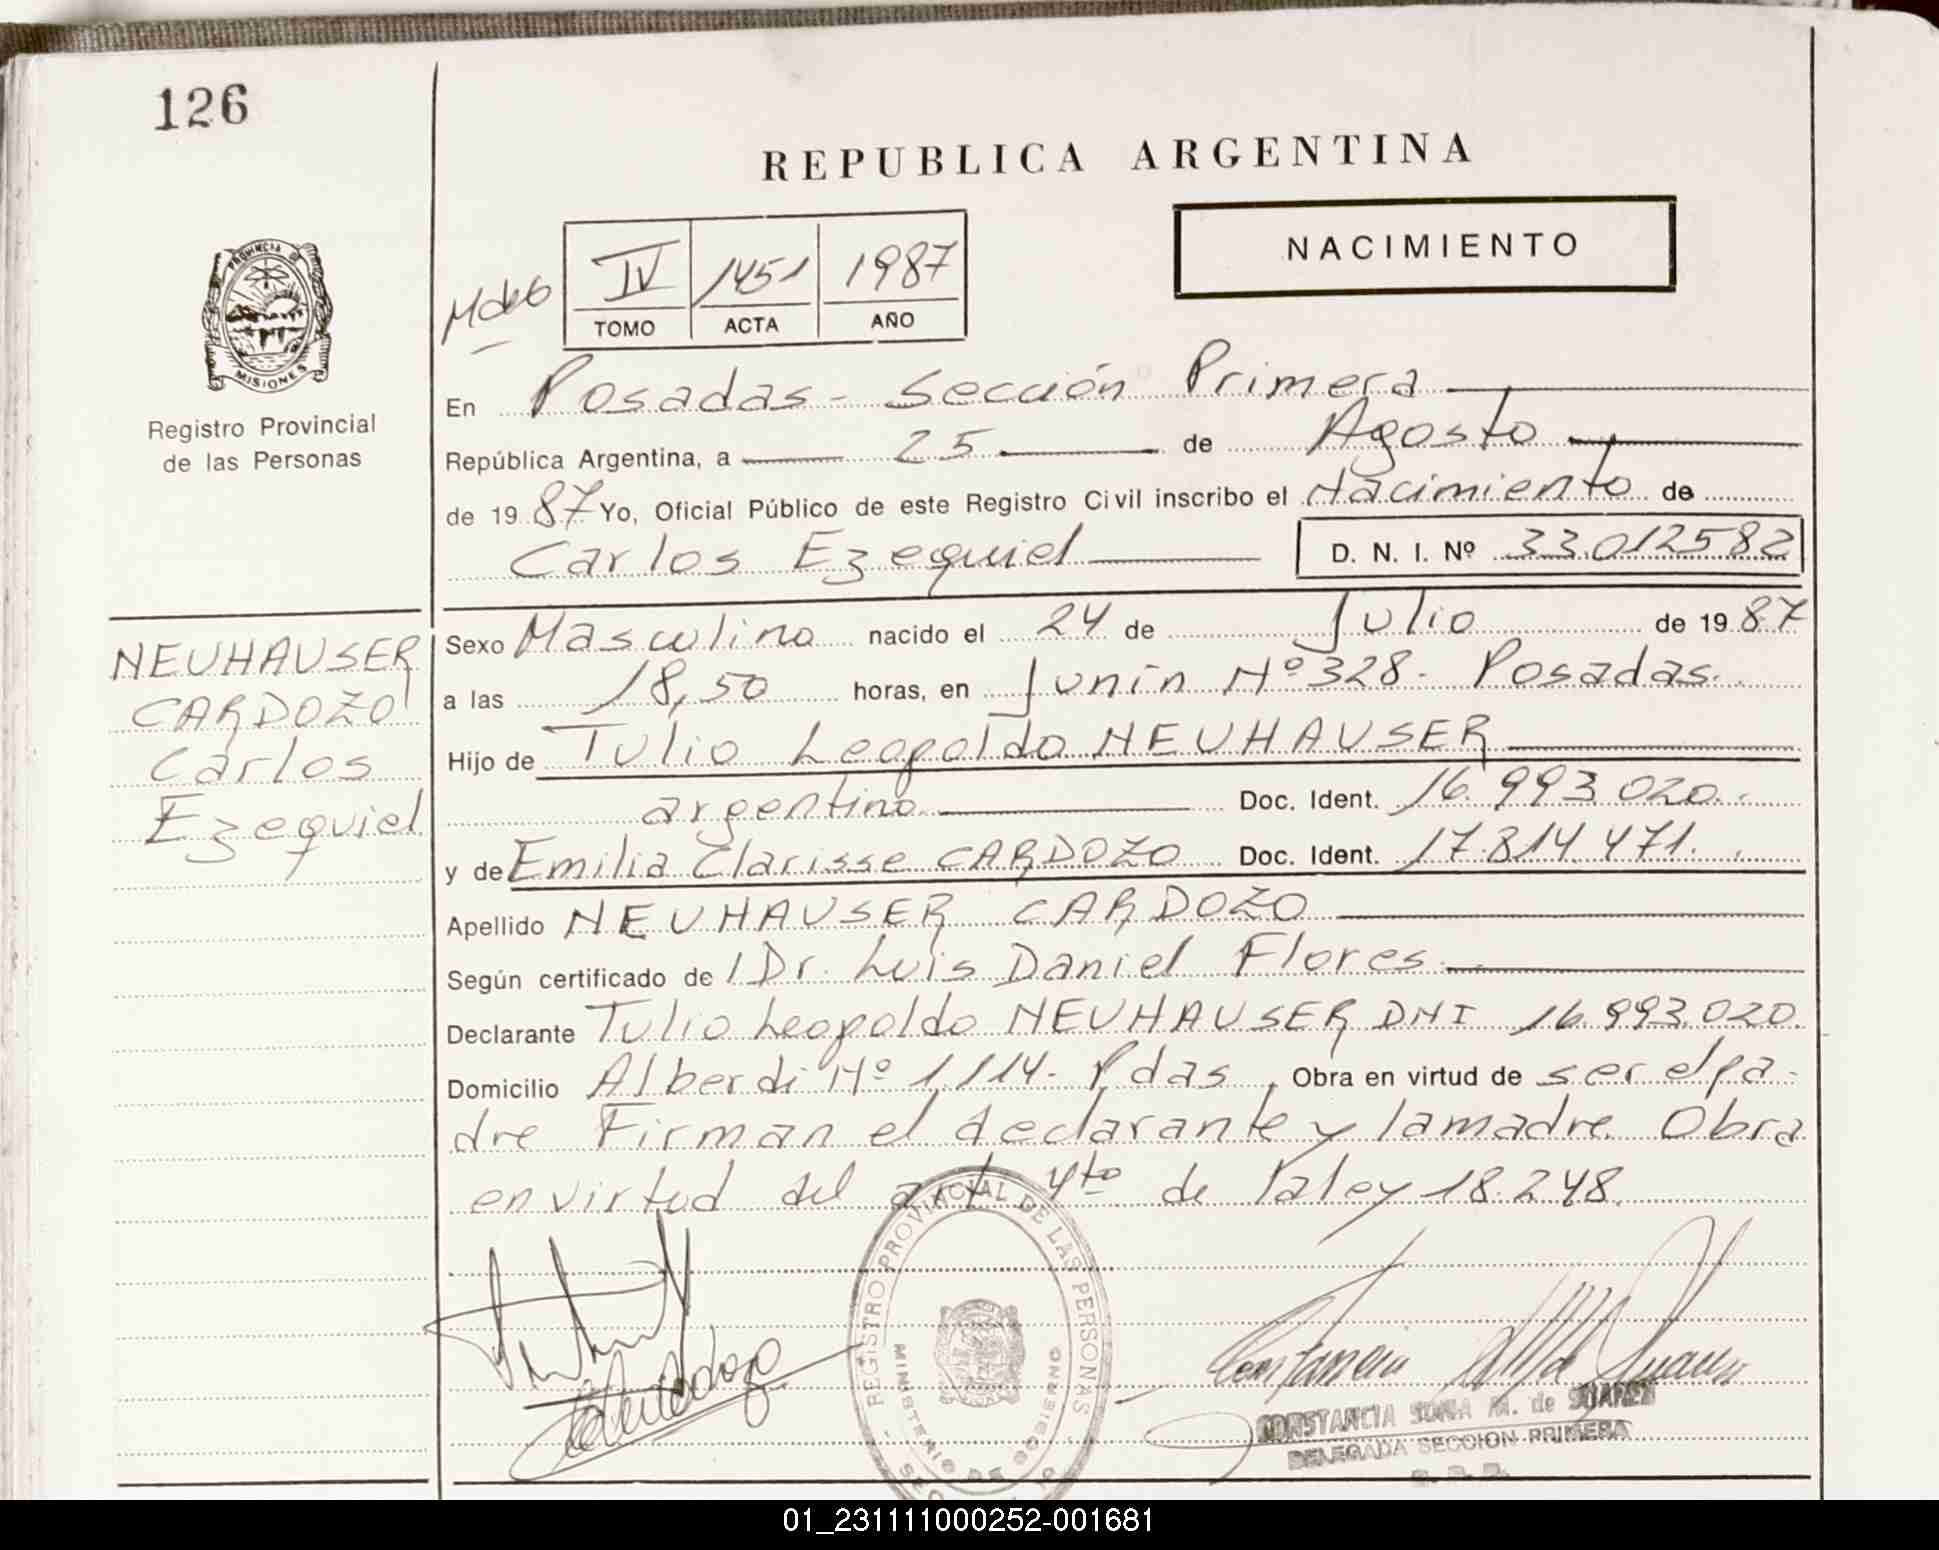 126
REPUBLICA ARGENTINA
NACIMIENTO
IV 1451 1987
TOMO ACTA AÑO
PROVINCIA DE
MISIONES
Registro Provincial
de las Personas
En Posadas - Sección Primera
República Argentina, a 25 de Agosto
de 1987 Yo, Oficial Público de este Registro Civil inscribo el Nacimiento de
Carlos Ezequiel D. N. I. Nº 33.012582
NEUHAUSER
CARDOZO
Carlos
Ezequiel
Sexo Masculino nacido el 24 de Julio de 1987
a las 18,50 horas, en Junín Nº 328- Posadas.
Hijo de Tulio Leopoldo NEUHAUSER
argentino Doc. Ident. 16.993.020.
y de Emilia Clarisse CARDOZO Doc. Ident. 17.814.471.
Apellido NEUHAUSER CARDOZO
Según certificado de / Dr. Luis Daniel Flores.
Declarante Tulio Leopoldo NEUHAUSER DNI 16.993.020.
Domicilio Alberdi Nº 1,114- Pdas, Obra en virtud de ser el pa-
dre Firman el declarante y la madre. Obra
en virtud del art 4to de la ley 18.248.
REGISTRO PROVINCIAL DE LAS PERSONAS
MINISTERIO DE GOBIERNO
CONSTANCIA SONIA M. de SUAREZ
DELEGADA SECCION PRIMERA
01_231111000252-001681